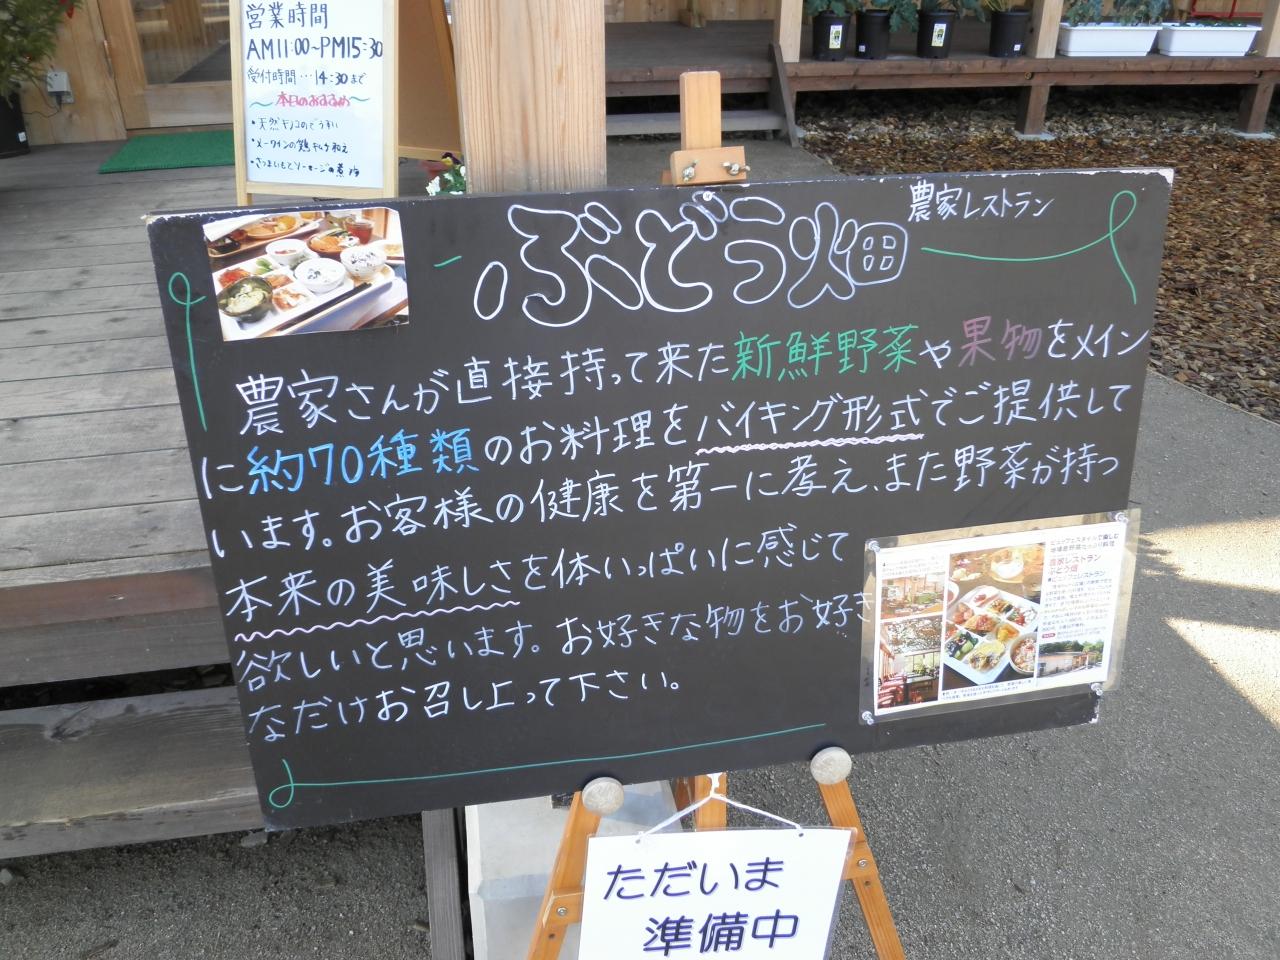 営業時間
AM11:00〜PM15:30
受付時間…14:30まで
本日のおすすめ
・天然キノコのぞうすい
・メークインの鶏キムチ和え
・さつまいもとソーセージの煮物
農家レストラン
ぶどう畑
農家さんが直接持って来た新鮮野菜や果物をメイン
に約70種類のお料理をバイキング形式でご提供して
います。お客様の健康を第一に考え、また野菜が持つ
本来の美味しさを体いっぱいに感じて
欲しいと思います。お好きな物をお好き
なだけお召し上って下さい。
ビュッフェスタイルで楽しむ
地場産野菜たっぷり料理
農家レストラン
ぶどう畑
ビュッフェレストラン
ただいま
準備中